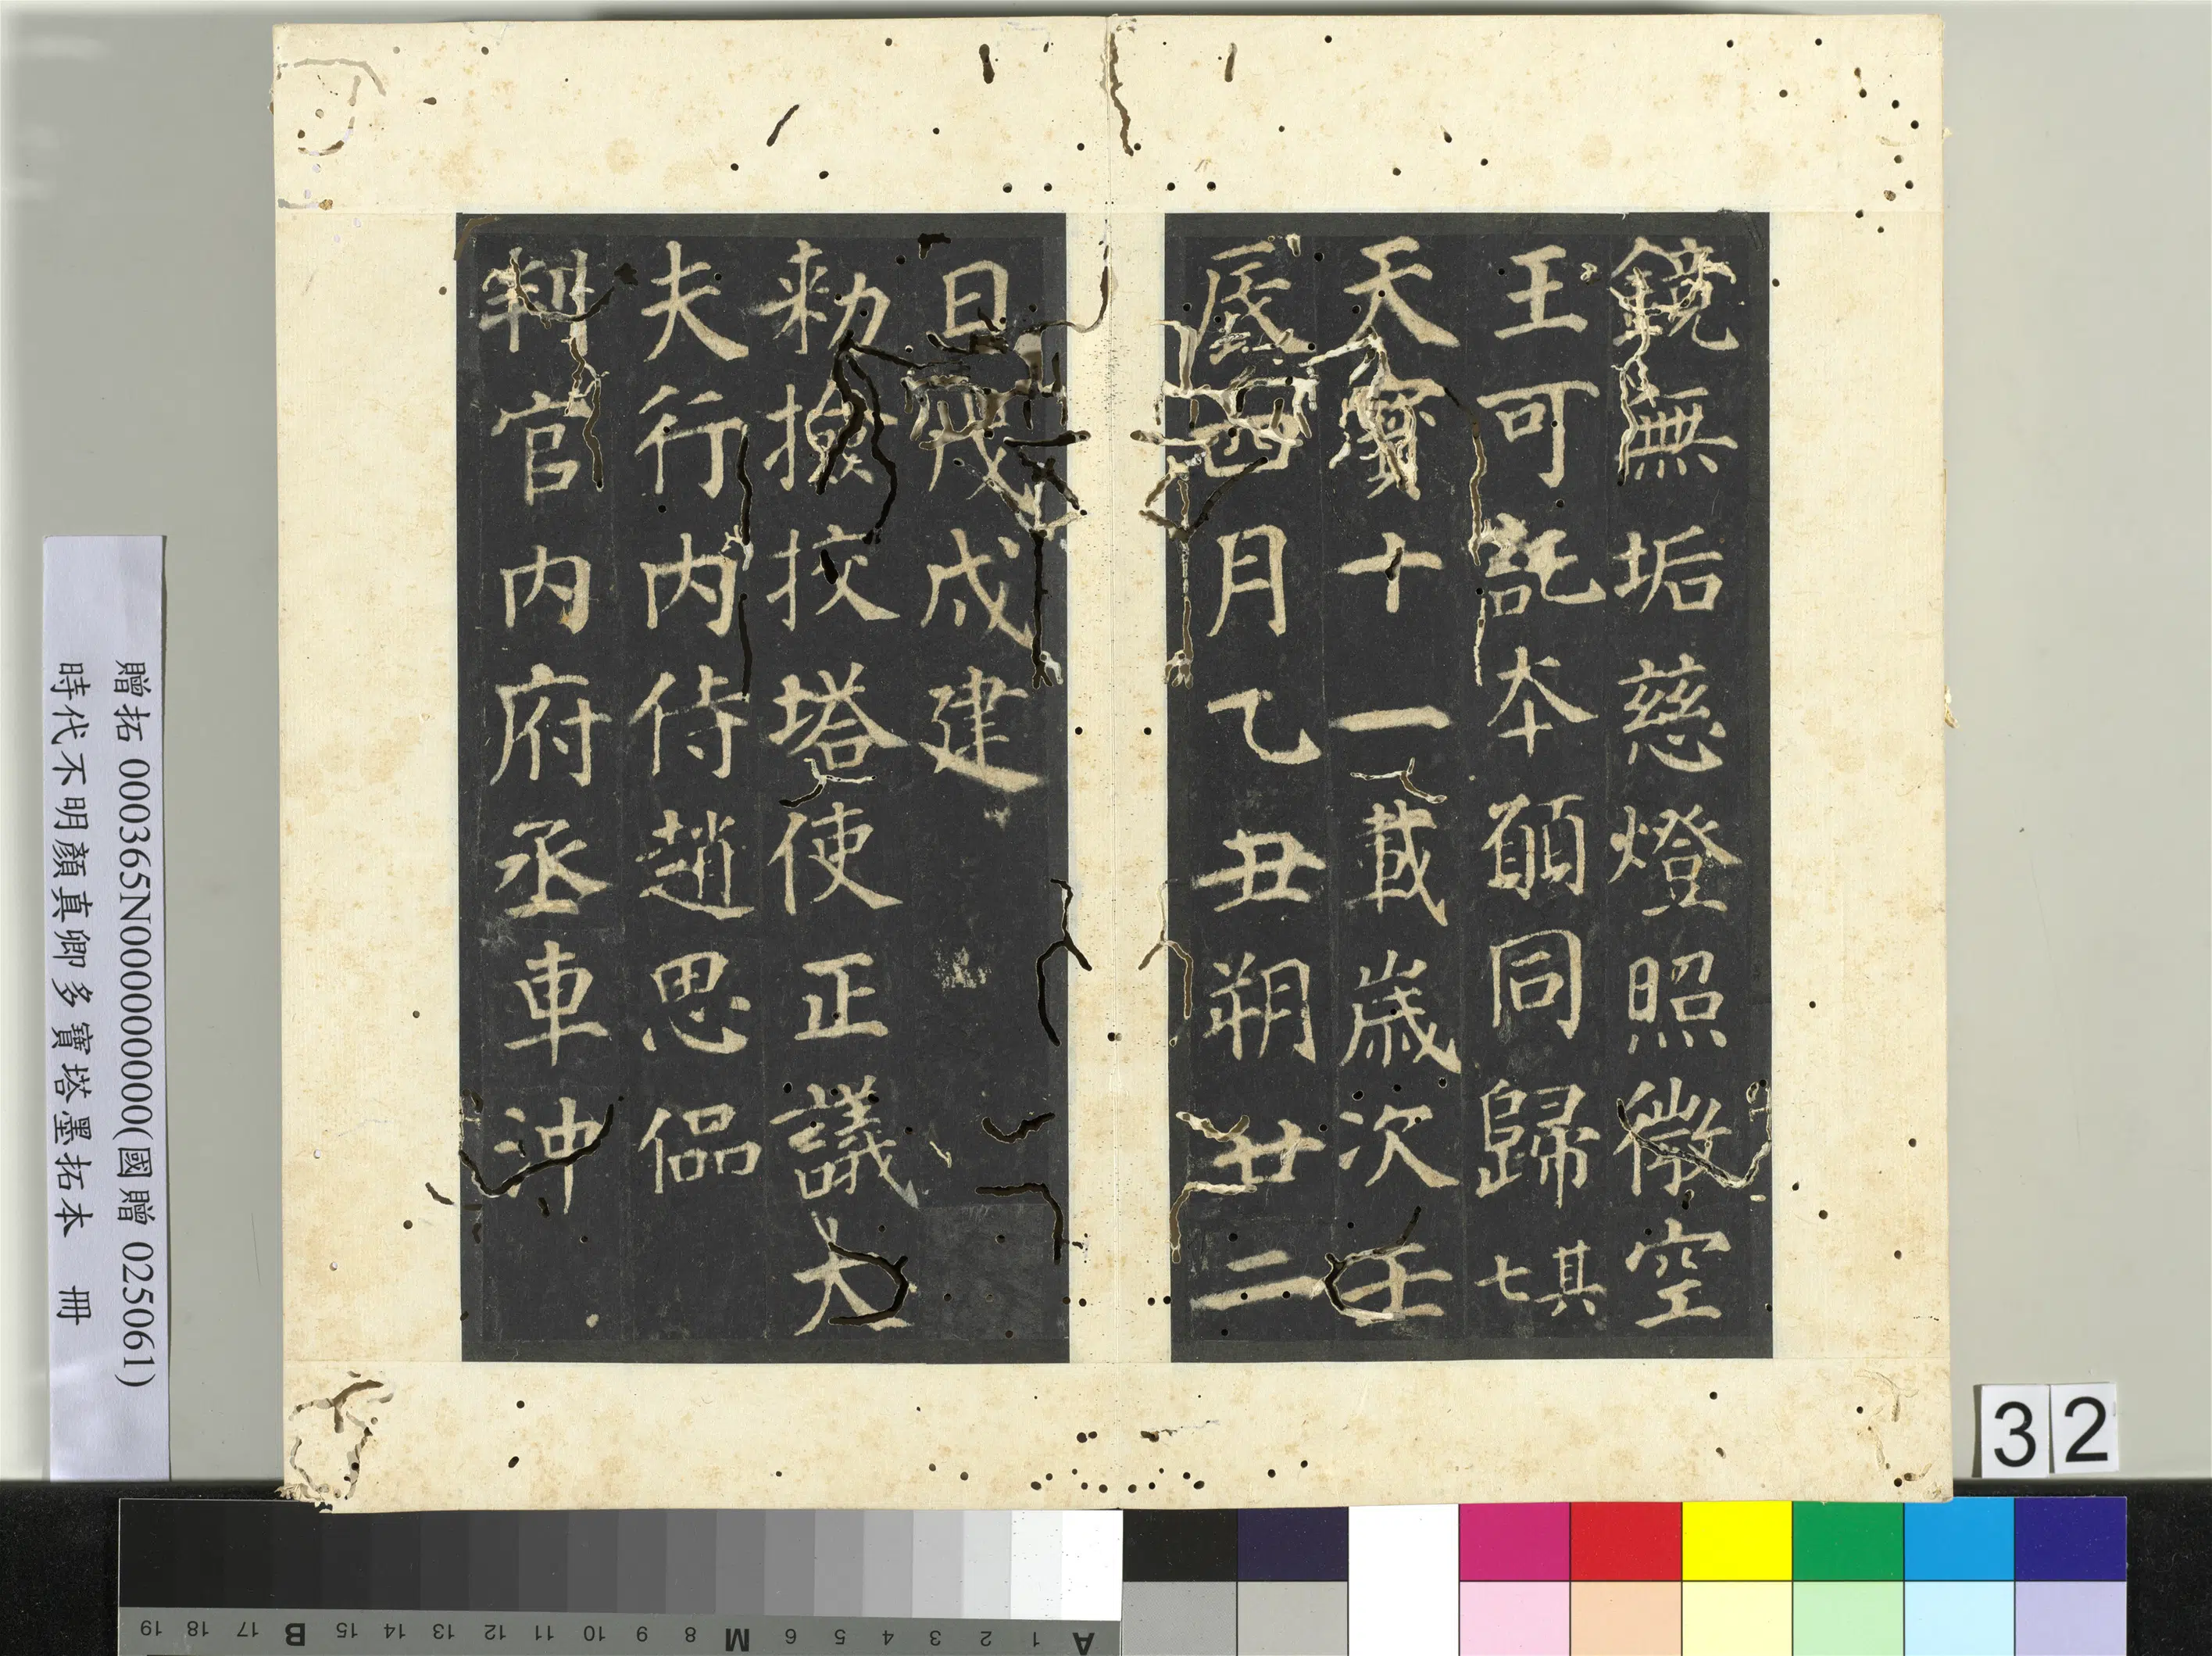 鏡無垢慈燈照微空
王可託夲願同歸其七
天寶十一載歲次壬
辰四月乙丑朔廿二
日戊戍建
勑撿挍塔使正議大
夫行內侍趙思偘
判官內府丞車沖
贈拓 000365N000000000(國贈 025061)
時代不明顏真卿多寶塔墨拓本 冊
32
A 1 2 3 4 5 6 M 8 9 10 11 12 13 14 15 B 17 18 19